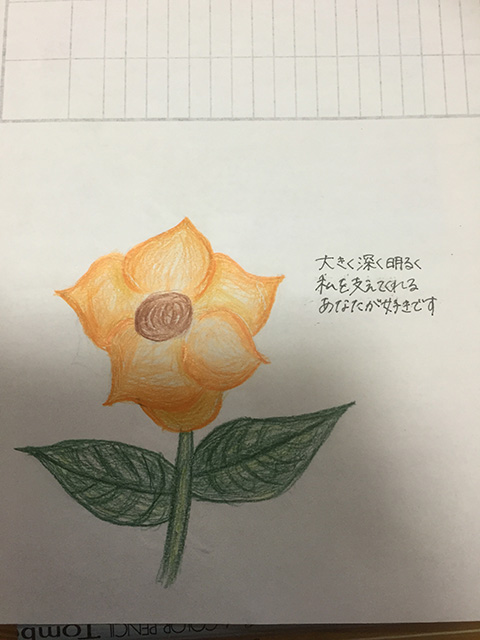 大きく深く明るく
私を支えてくれる
あなたが好きです
COLOR PENCIL Tombo